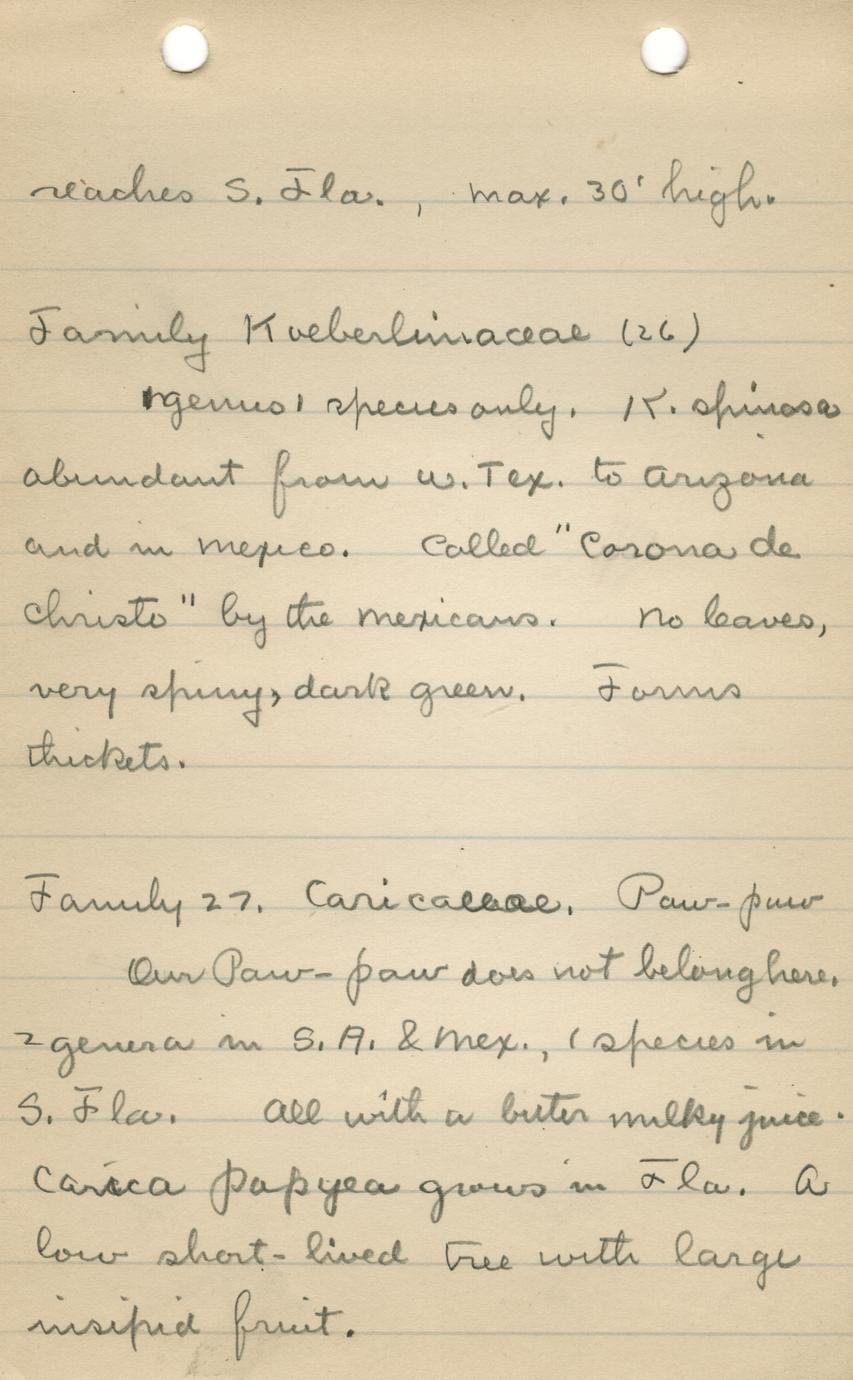 reaches S. Fla., max. 30' high.
Family Koeberliniaceae (26)
1 genus 1 species only. K. spinosa
abundant from w. Tex. to Arizona
and in Mexico. Called "Corona de
Christo" by the Mexicans. No leaves,
very spiny, dark green. Forms
thickets.
Family 27. Caricaceae. Paw-paw
Our Paw-paw does not belong here.
2 genera in S. A. & Mex., 1 species in
S. Fla. All with a bitter milky juice.
Carica papyea grows in Fla. A
low short-lived tree with large
insipid fruit.